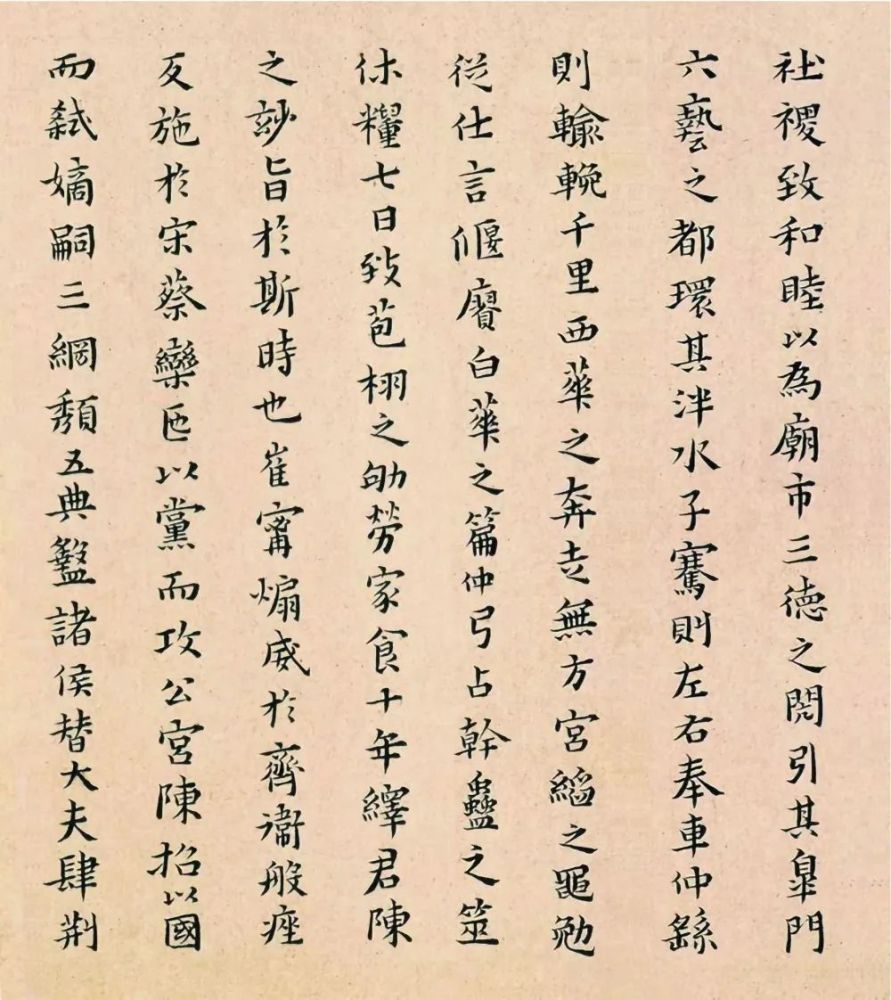 社禝致和睦以為廟市三德之閌引其臯門
六藝之都環其泮水子騫則左右奉車仲繇
則輸輓千里西華之奔走無方宮縚之黽勉
從仕言偃賡白華之篇仲弓占幹蠱之筮
休糧七日致苞栩之劬勞家食十年繹君陳
之玅旨於斯時也崔甯煽威於齊衛般痤
反施於宋蔡欒叵以黨而攻公宮陳招以國
而弑嫡嗣三綱頽五典盭諸侯替大夫肆荆